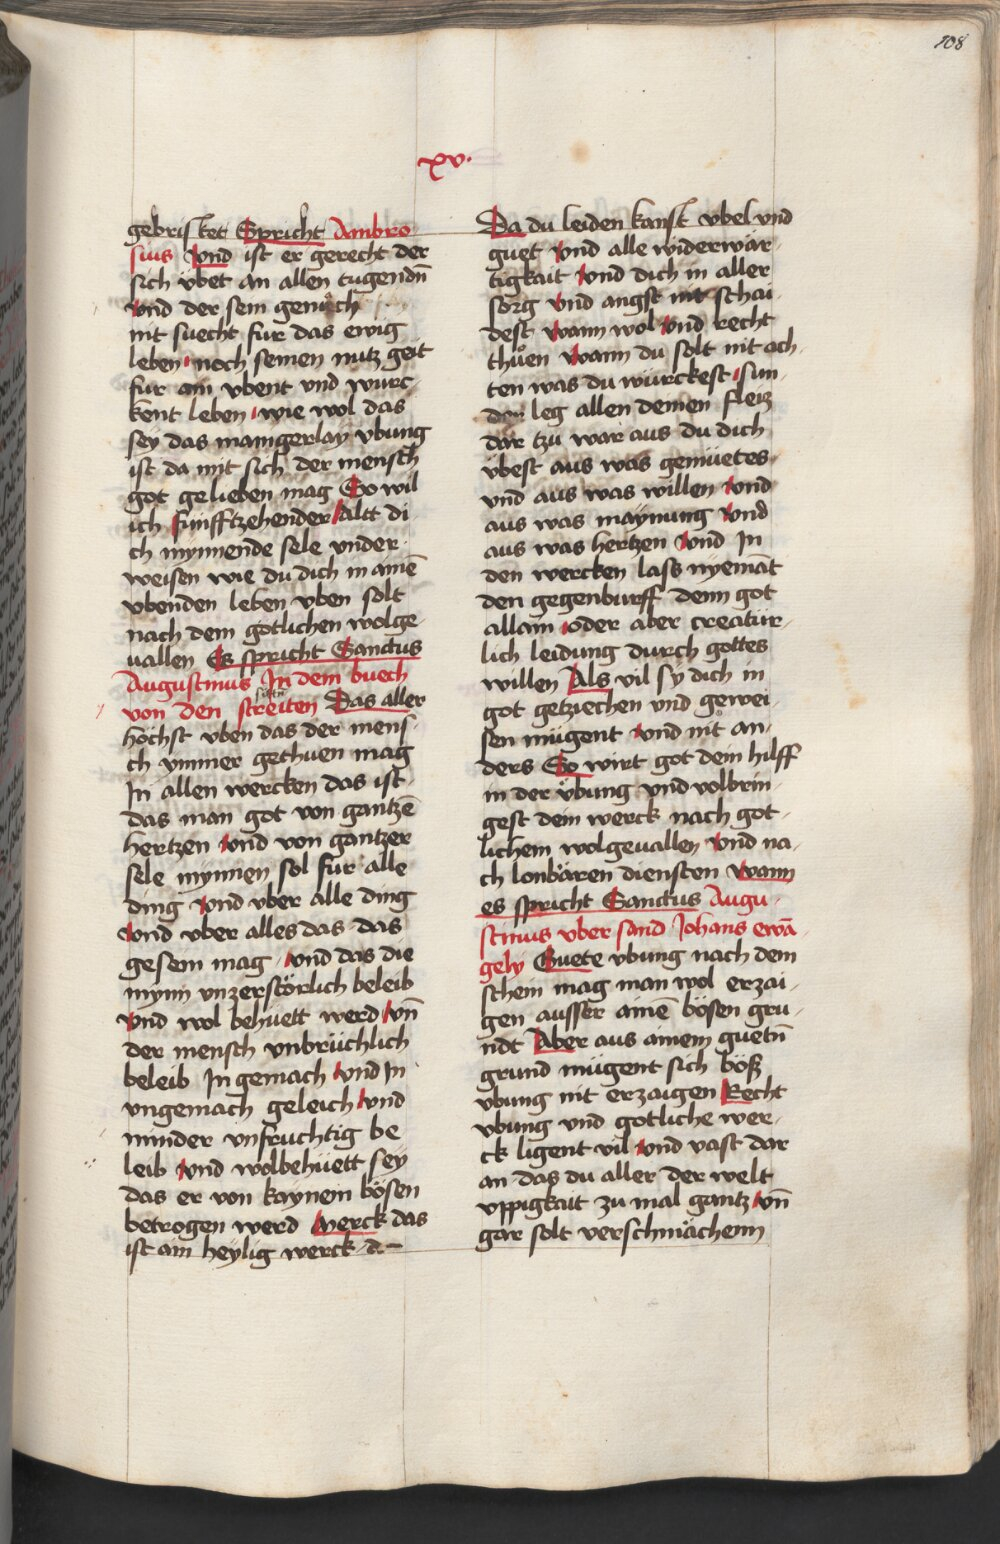 108
xv.
gebristet Spricht Ambro
sius Und ist er gerecht der
sich übet an allen tugendn̄
Und der sein gemach
nit suecht fur das ewig
leben noch seinen nutz geit
fur ain vbent vnd wurc
kent leben wie wol das
sey das maingerlay vbung
ist da mit sich der mensch
got gelieben mag So wil
ich funfftzehender Altt di
ch mynnende sele vnder
weisen wie du dich in ainē
vbenden leben vben solt
nach dem gotlichen wolge
uallen Es spricht Sanctus
Augustinus In dem buech
von den streiten Das aller
höchst vben das der mens
ch ymmer gethuen mag
In allen wercken das ist
das man got von gantzē
hertzen Vnd von gantzer
sele mynnen sol fur alle
ding Vnd vber alle ding
Vnd vber alles das das
gesein mag Vnd das die
mynn vnzerstörlich beleib
Vnd wol behüett werd Vn̄
der mensch vnbrüchlich
beleib In gemach Vnd In
vngemach geleich Vnd
minder vnfruchtig be
leib Vnd wolbehüett sey
das er von kaynem bösen
betrogen werd Merck das
ist ain heylig werck
Da du leiden kanst vbel vnd
guet Vnd alle widerwär
tigkait Vnd dich in aller
sorg Vnd angst nit schai
dest Wann wol Vnd recht
thuen Wann du solt nit ach
ten was du würckest sun
der leg allen deinen fleiz
dar tzu war aus du dich
übest aus was gemüetes
vnd aus was willen Vnd
aus was maynung Vnd
aus was hertzen Vnd In
den wercken lass nyemāt
den gegenburff denn got
allain oder aber creatür
lich leidung durch gottes
willen Als vil sy dich in
got getziechen vnd gewei
sen mügent Vnd nit an
ders So wirt got dein hilff
in der übung vnd volbrin
gest dein werck nach got
lichem wolgeuallen Vnd na
ch lonbären diensten Wann
es spricht Sanctus Augu
stinus vber sand Johans ewā
gely Guete vbung nach dem
schein mag man wol erzai
gen ausser ainē bösen gru
ndt Aber aus ainem guetn̄
grund mügent sich böß
vbung nit erzaigen Recht
vbung vnd gotliche wer
ck ligent vil Vnd vast dar
an das du aller der welt
vppigkait zu mal gantz Vn̄
gar solt verschmächenn